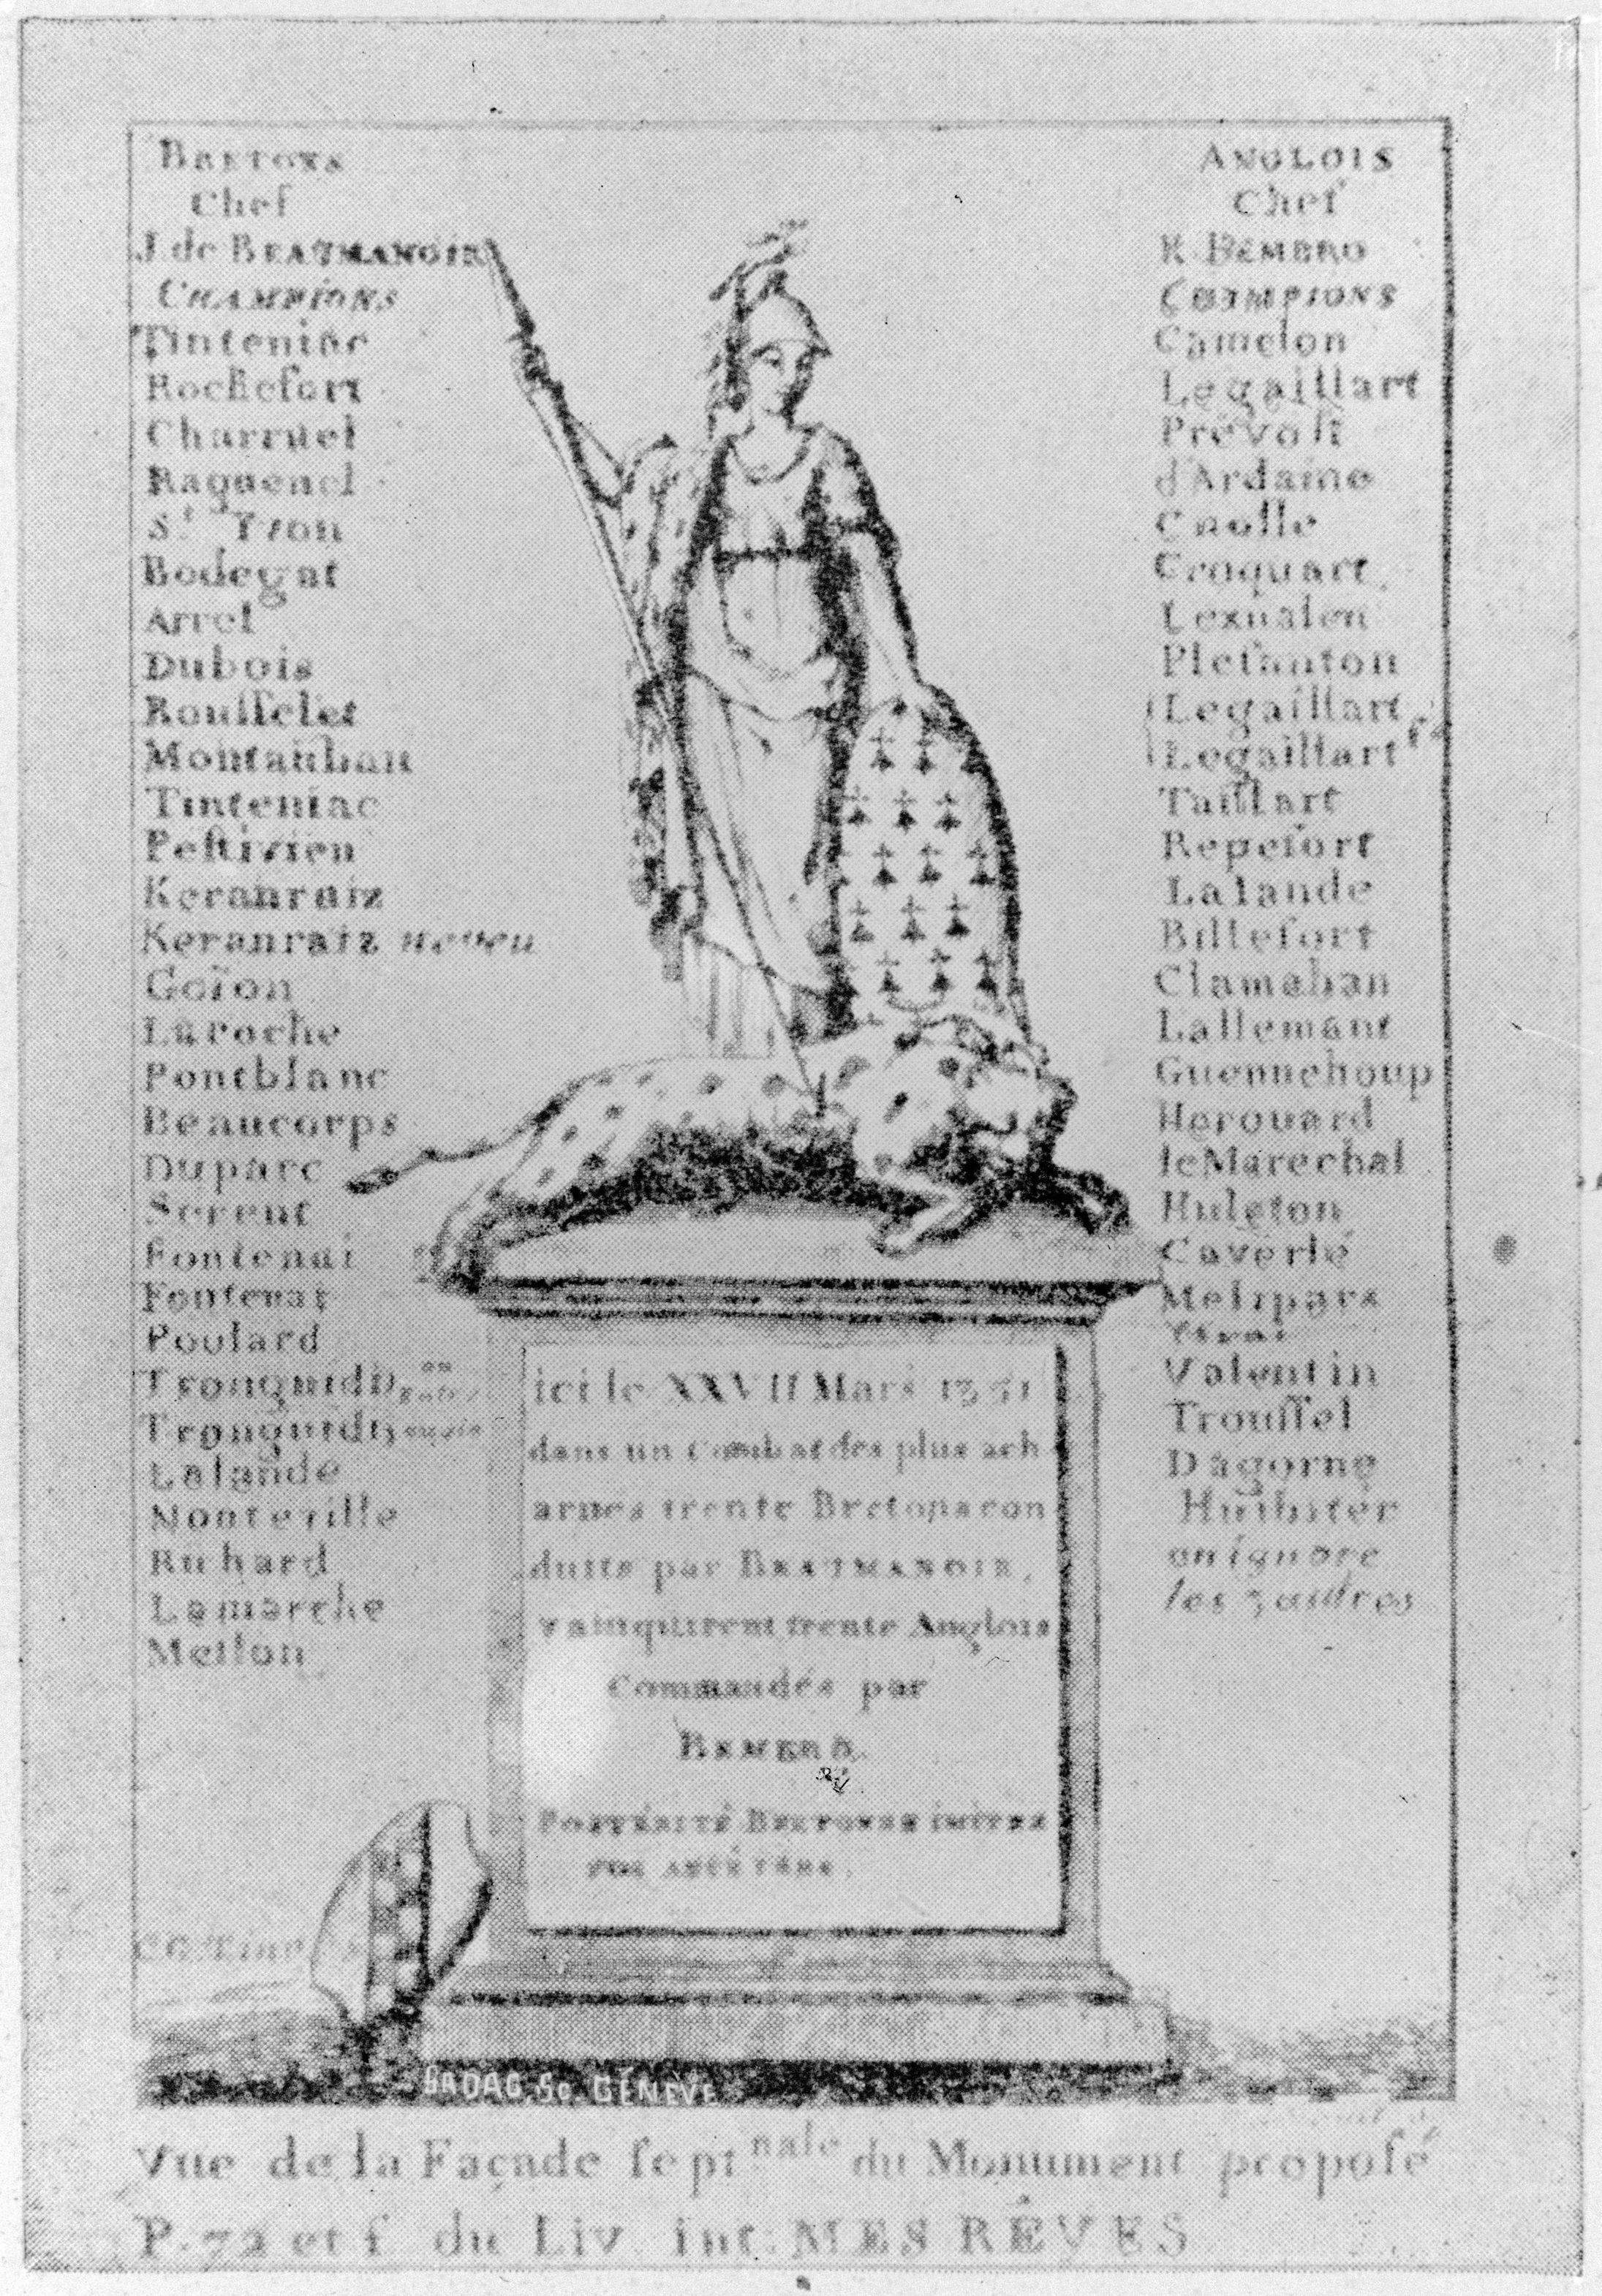 BRETONS
Chef
J. de BEAUMANOIR
CHAMPIONS
Tinteniac
Rochefort
Charruel
Raguenel
St. Yvon
Bodegat
Arrel
Dubois
Rouſſelet
Montauban
Tinteniac
Peſtivien
Keranraiz
Keranraiz neveu
Goïon
Laroche
Pontblanc
Beaucorps
Duparc
Serent
Fontenai
Fontenai
Poulard
Tronguidi
Tronguidi
Lalande
Monteville
Richard
Lamarche
Mellon
ANGLOIS
Chef
R BEMBRO
CHAMPIONS
Camelon
Legaillart
Prévoſt
d'Ardaine
Cnolle
Croquart
Lexualen
Pleſanton
Legaillart
Legaillart
Taillart
Repefort
Lalande
Billefort
Clamaban
Lallemant
Guennehoup
Herouard
le Marechal
Hulgton
Caverlé
Melipars
Valentin
Trouſſel
Dagorne
on ignore
les 3 autres
ici le XXVII Mars 1351
dans un Combat des plus ach
arnés trente Bretons con
duits par BEAUMANOIR,
vainquirent trente Anglois
Commandés par
BEMBRO.
POSTÉRITÉ BRETONNE IMITEZ
VOS ANCÊTRES.
SADAG. Sc. GENÈVE
Vue de la Façade ſeptnale du Monument propoſé
P. 72 et ſ du Liv int: MES RÊVES